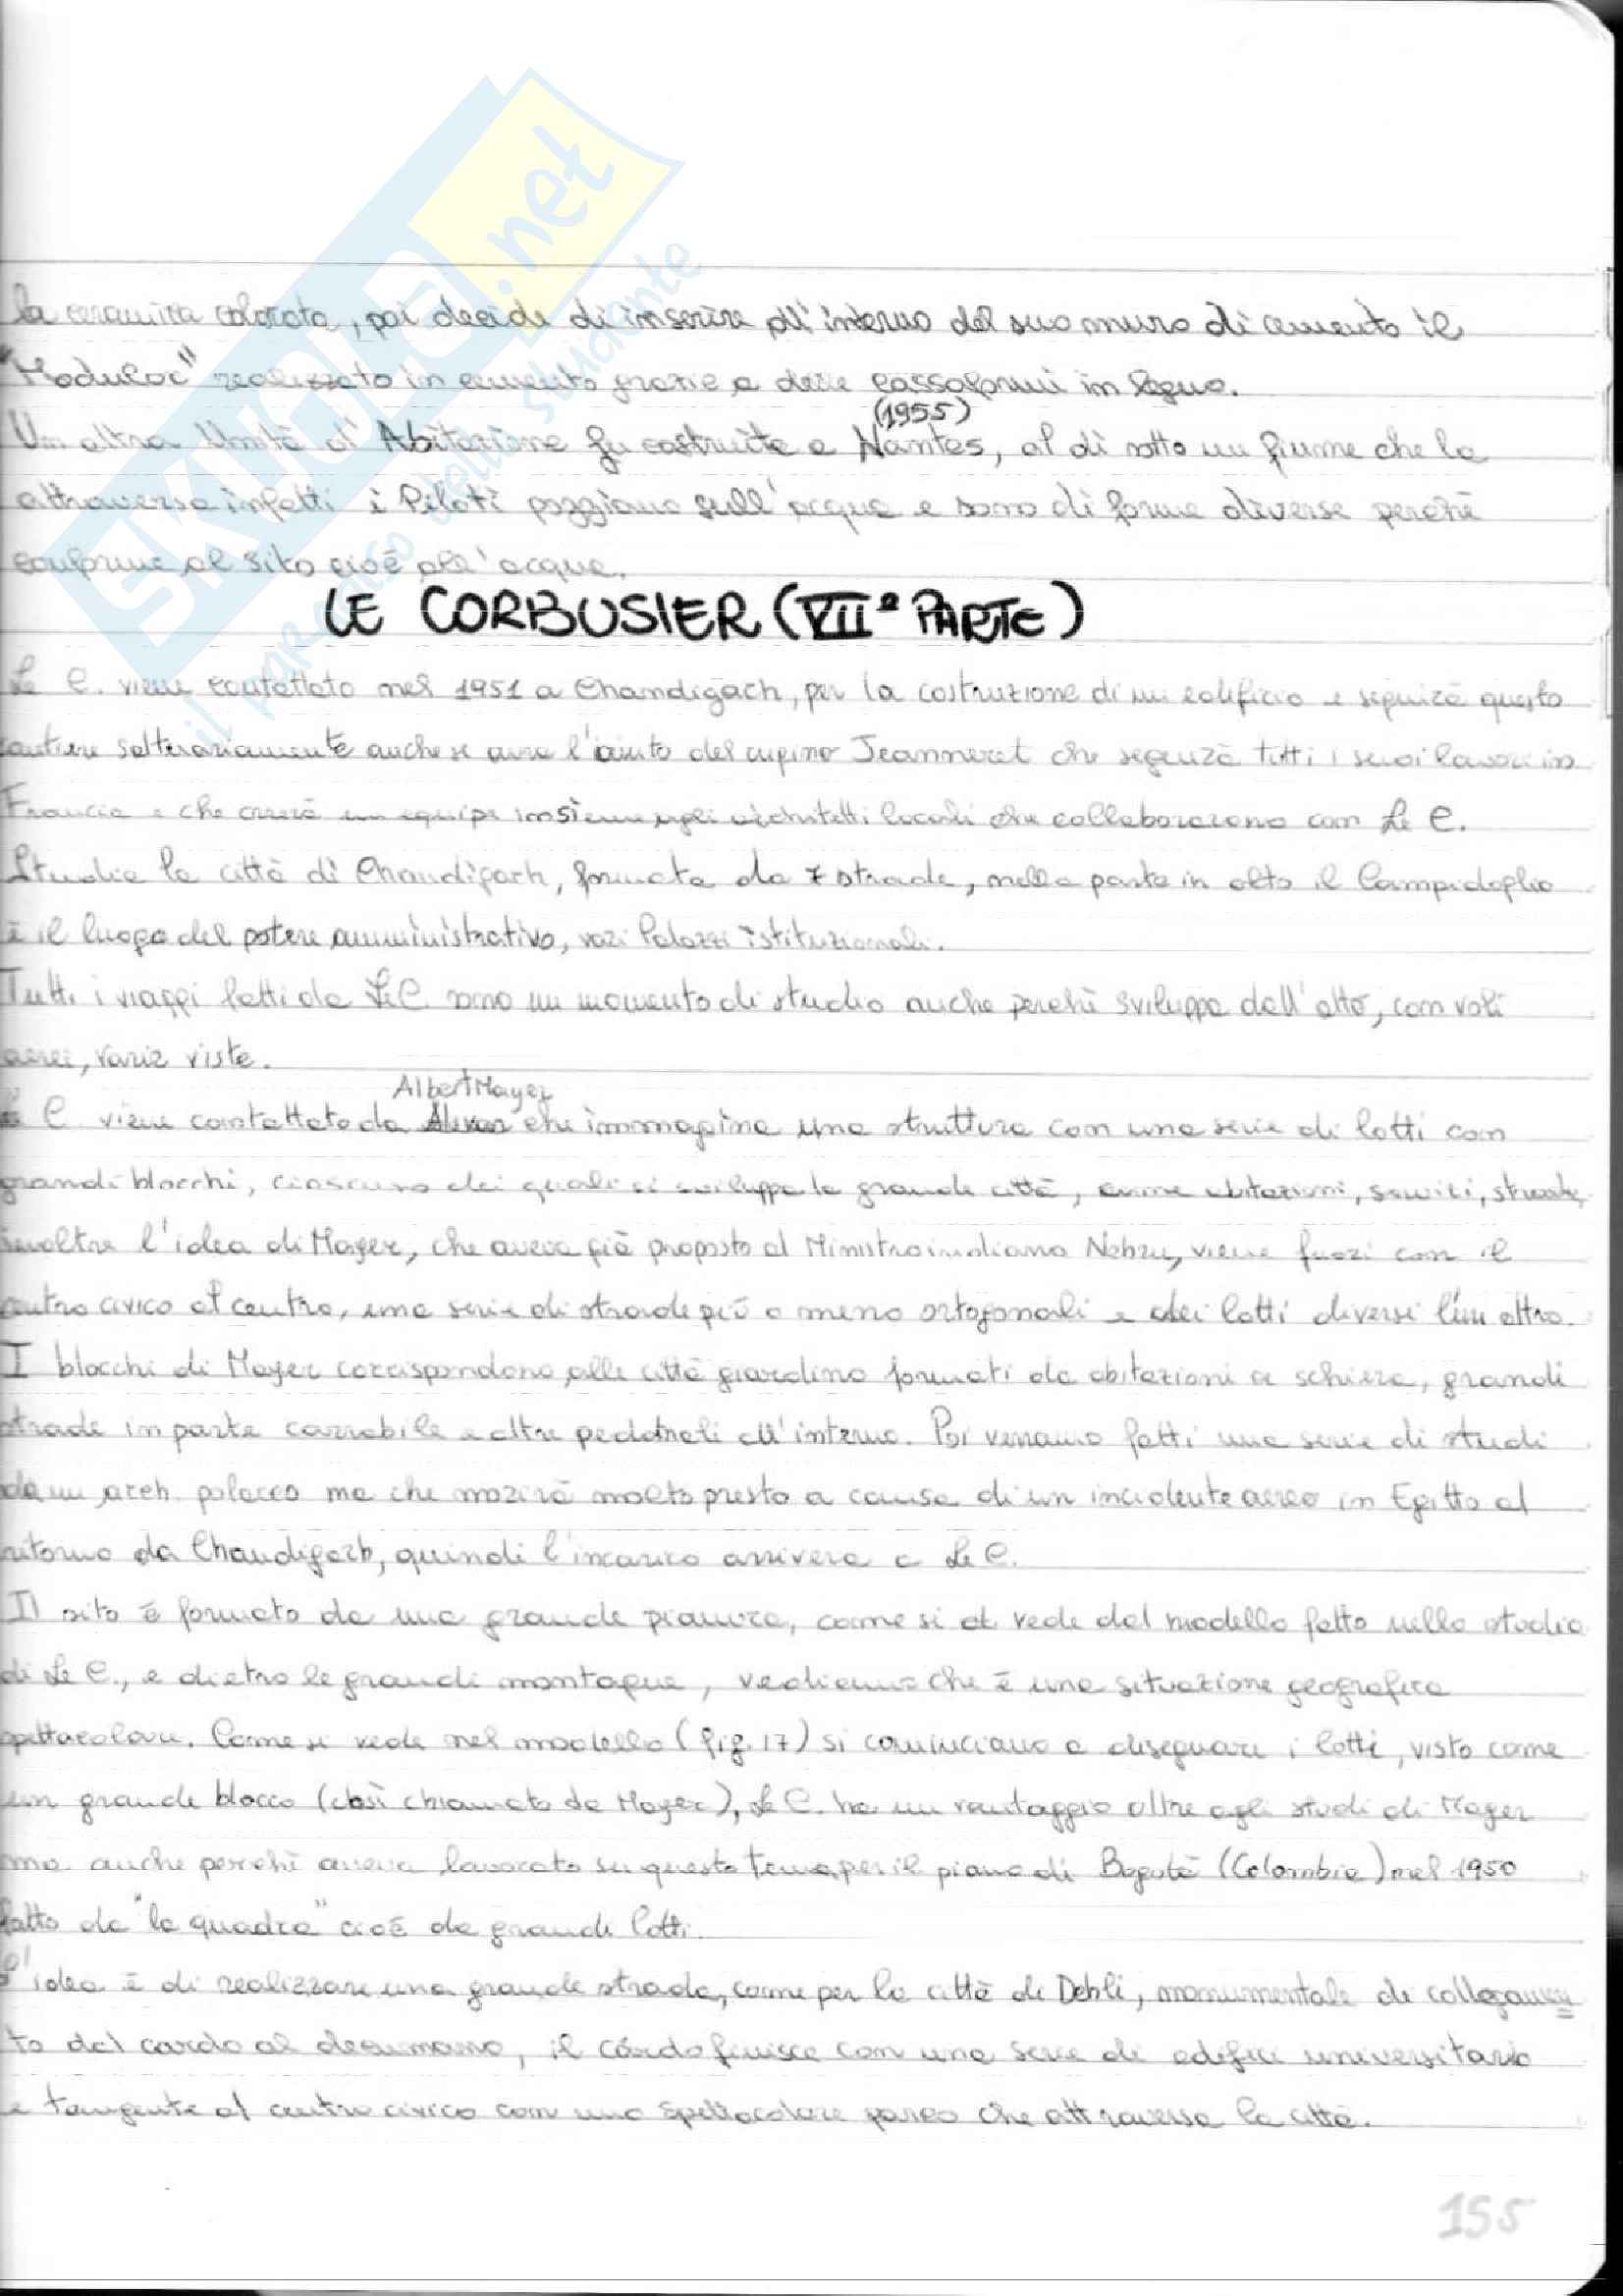 la ceramica colorata, poi decide di inserire all'interno del suo muro di cemento il
"Modulor" realizzato in cemento grazie a delle cassaformi in legno.
(1955)
Un altra Unità d'Abitazione fu costruita a Nantes, al di sotto un fiume che la
attraversa infatti i Piloti poggiano sull'acqua e sono di forme diverse perchè
conforme al sito cioè all'acqua.
LE CORBUSIER (VIIª PARTE)
Le C. viene contattato nel 1951 a Chandigach, per la costruzione di un edificio e seguirà questo
cantiere saltuariamente anche se avra l'aiuto del cugino Jeanneret che seguirà tutti i suoi lavori in
Francia e che creerà un equipe insieme agli architetti locali che collaborarono con Le C.
Studia la città di Chandigarh, formata da 7 strade, nella parte in alto il Campidoglio
è il luogo del potere amministrativo, vari Palazzi istituzionali.
Tutti i viaggi fatti da Le C. sono un momento di studio anche perchè sviluppa dall'alto, con voli
aerei, varie viste.
Albert Mayer
Le C. viene contattato da che immagina una struttura con una serie di lotti con
grandi blocchi, ciascuno dei quali si sviluppa la grande città, come abitazioni, servizi, strade,
inoltre l'idea di Mayer, che aveva già proposto al Ministro indiano Nehru, viene fuori con il
centro civico al centro, una serie di strade più o meno ortogonali e dei lotti diversi l'un altro.
I blocchi di Mayer corrispondono alle città giardino formati da abitazioni a schiera, grandi
strade in parte carrabile e altre pedonali all'interno. Poi vennero fatti una serie di studi
da un arch. polacco ma che morirà molto presto a causa di un incidente aereo in Egitto al
ritorno da Chandigarh, quindi l'incarico arriverà a Le C.
Il sito è formato da una grande pianura, come si vede dal modello fatto nello studio
di Le C., e dietro le grandi montagne, vediamo che è una situazione geografica
spettacolare. Come si vede nel modello (fig. 17) si cominciano a disegnare i lotti, visto come
un grande blocco (così chiamato da Mayer), Le C. ha un vantaggio oltre agli studi di Mayer
ma anche perchè aveva lavorato su questo tema per il piano di Bogotà (Colombia) nel 1950
fatto da "la quadra" cioè da grandi lotti.
L'idea è di realizzare una grande strada, come per la città di Dehli, monumentale di collegamen=
to dal cardo al decumano, il cardo finisce con una serie di edifici universitario
e tangente al centro civico con uno spettacolare parco che attraversa la città.
155
SKUOLA.net
il paradiso dello studente